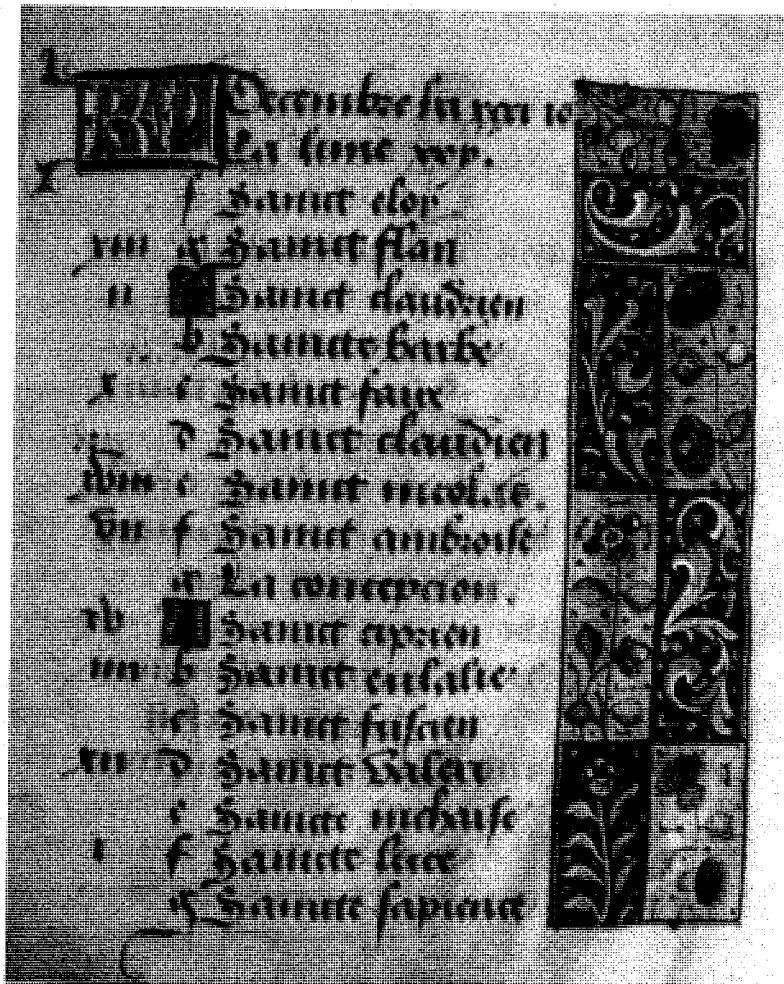 KL Decembre ha xxxi io
La lune xxx.
f Sainct eloy
xiii g Sainct flan
ii A Sainct claudrien
b Saincte barbe
x c Sainct saux
d Sainct claudien
xviii e Sainct nicolas.
vii f Sainct ambroise
g La concepcion.
xv A Sainct ciprien
iiii b Sainct eulalie
c Sainct fuscien
xii d Sainct valeri
e Saincte nichaise
i f Saincte luce
g Saincte sapience